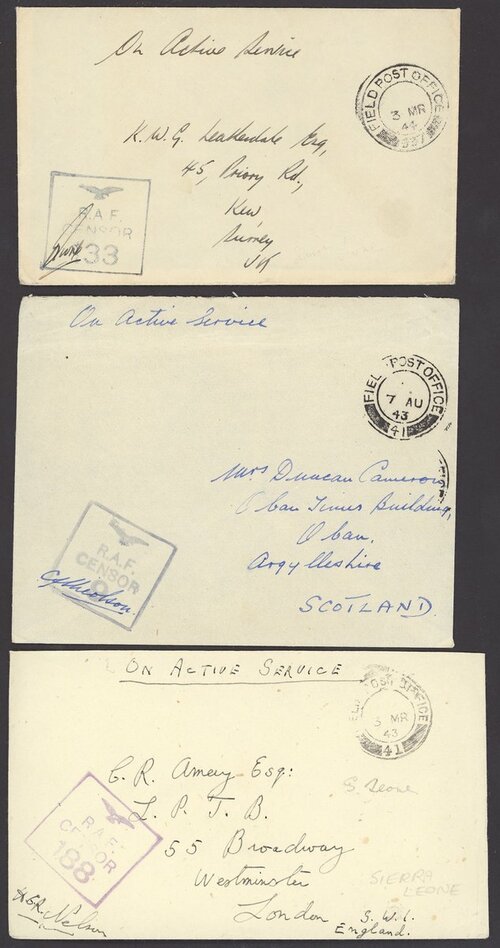 On Active Service
FIELD POST OFFICE
3 MR
44
K.W.G. Leatherdale Esq,
45, Priory Rd.,
Kew,
Surrey
UK
R.A.F.
CENSOR
33
On Active Service
FIELD POST OFFICE
7 AU
43
41
Mrs Duncan Cameron,
Oban Times Building,
Oban,
Argyllshire
SCOTLAND.
R.A.F.
CENSOR
ON ACTIVE SERVICE
FIELD POST OFFICE
3 MR
43
41
C. R. Amey Esq:
L. P. T. B.
55 Broadway
Westminster
London S.W.1.
England.
S. Leone
SIERRA
LEONE
R.A.F.
CENSOR
188
Nelson